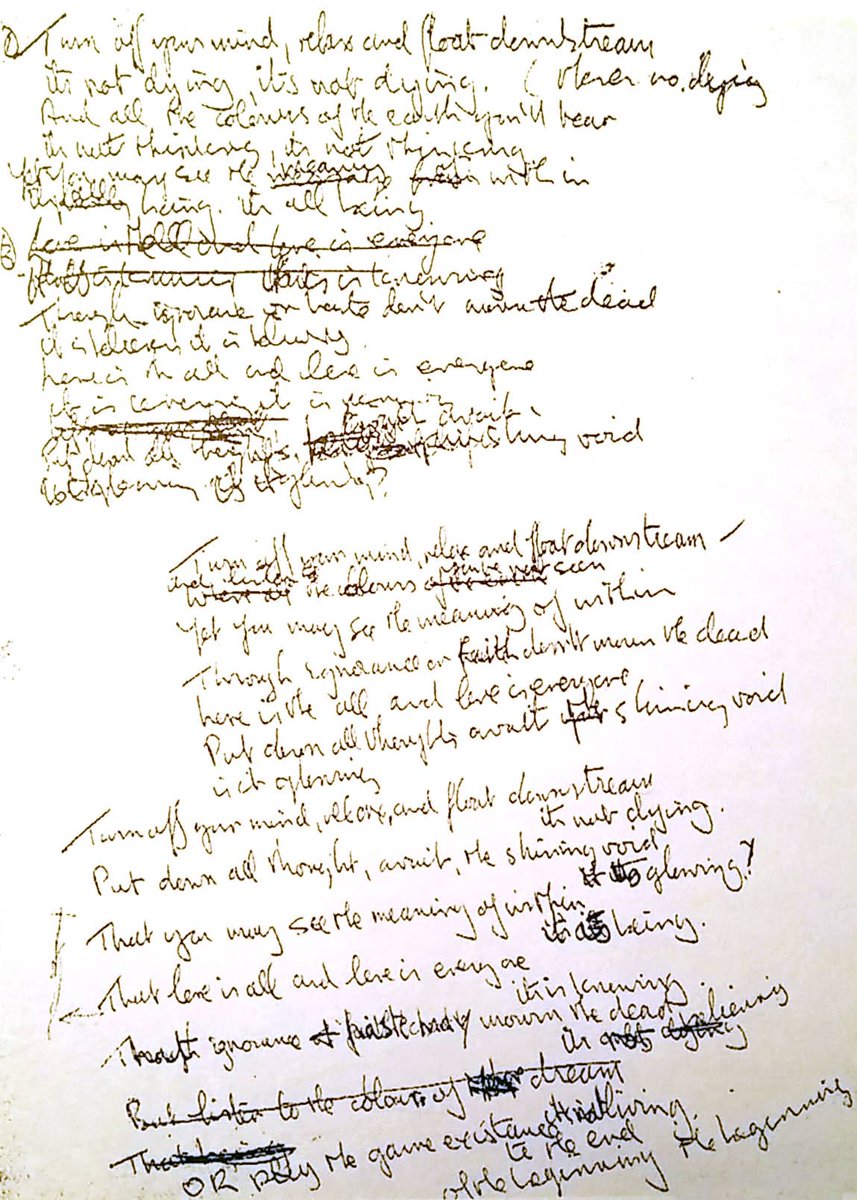 Turn off your mind, relax and float downstream
its not dying, it's not dying. ( there no. dying
And all the colours of the earth you'll hear
its not thinking, its not thinking
Yet you may see the meaning within
its being. its all being
2) Love is all and love is everyone
is knowing that is knowing
Through ignorance or haste don't mourn the dead
it is believing it is believing.
love is the all and love is everyone
it is it is
Put down all thoughts, await shining void
Turn off your mind, relax and float downstream
and listen to the colours seen
Yet you may see the meaning of within
Through ignorance or faith don't mourn the dead
love is the all and love is everyone
Put down all thoughts await the shining void
is it glowing
Turn off your mind, relax, and float downstream
its not dying.
Put down all thought, await, the shining void
its glowing?
That you may see the meaning of within
its being.
That love is all and love is everyone
it is knowing.
Through ignorance mourn the dead
its believing
But listen to the colour of dream
its not living.
That
OR play the game existance to the end
of the beginning the beginning